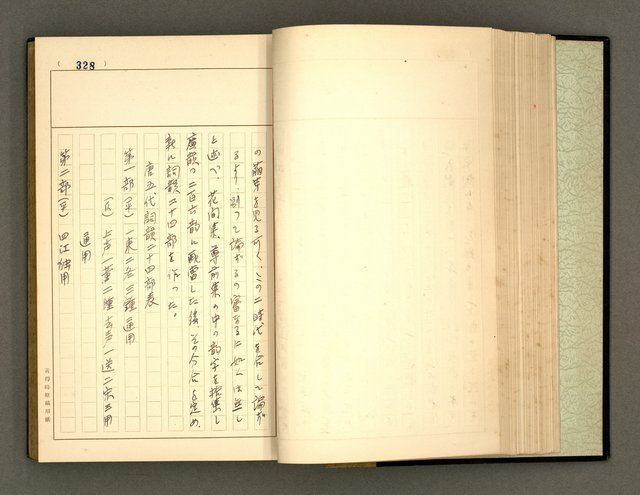 (328)
の萠芽を見る可く、この二時代を合して論ず
るより、別つて論ずるの審なるに如くは無し
と述べ、花間集、尊前集の中の韻字を摭集し
廣韻の二百六韻に配當した後、その分合を定め、
新に詞韻二十四部を作った。
唐五代詞韻二十四部表
第一部(平)一東二冬三鍾通用
(仄)上声一董二腫去声一送二宋三用
通用
第二部(平)四江独用
黃得時原稿用紙